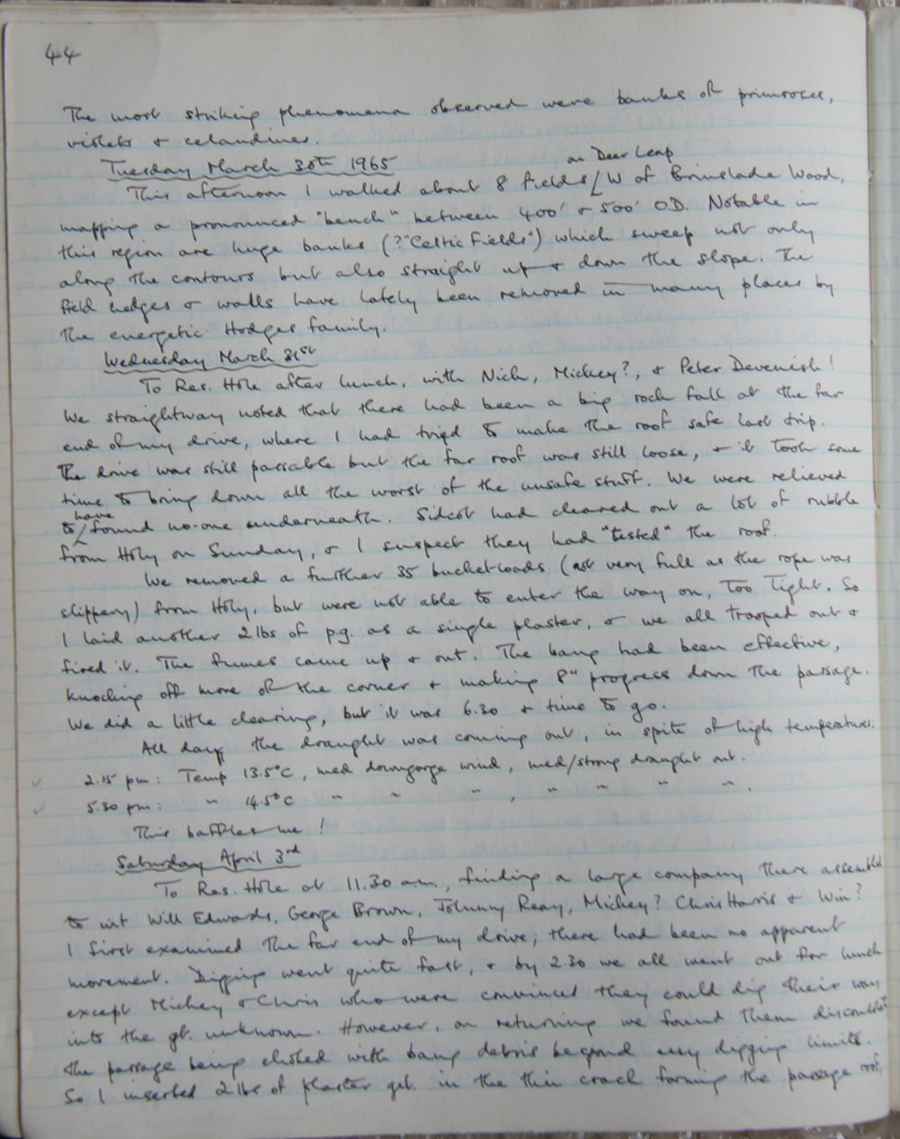 44
The most striking phenomena observed were banks of primroses,
violets & celandines.
Tuesday March 30th 1965
on Deer Leap
This afternoon I walked about 8 fields W of Brimslade Wood,
mapping a pronounced "bench" between 400' & 500' OD. Notable in
this region are huge banks (?"Celtic Fields") which sweep not only
along the contours but also straight up & down the slope. The
field hedges & walls have lately been removed in many places by
the energetic Hodges family.
Wednesday March 31st
To Res. Hole after lunch, with Nick, Mickey?, & Peter Devenish!
We straightway noted that there had been a big rock fall at the far
end of my drive, where I had tried to make the roof safe last trip.
The drive was still passable but the far roof was still loose, & it took some
time to bring down all the worst of the unsafe stuff. We were relieved
have
to found no-one underneath. Sidcot had cleared out a lot of rubble
from Holy on Sunday, & I suspect they had "tested" the roof.
We removed a further 35 bucketloads (not very full as the rope was
slippery) from Holy, but were not able to enter the way on, too tight. So
I laid another 2 lbs of p.g. as a single plaster, & we all trooped out &
fired it. The fumes came up & out. The bang had been effective,
knocking off more of the corner & making 8" progress down the passage.
We did a little clearing, but it was 6.30 & time to go.
All day the draught was coming out, in spite of high temperature.
2.15 pm: Temp 13.5°C, med downgorge wind, med/strong draught out.
5.30 pm: " 14.5°C " " " , " " " " .
This baffles me!
Saturday April 3rd
To Res. Hole at 11.30 am, finding a large company there assembled
to wit Will Edwards, George Brown, Johnny Reay, Mickey? Chris Harris & Win?
I first examined the far end of my drive; there had been no apparent
movement. Digging went quite fast, & by 2.30 we all went out for lunch
except Mickey & Chris who were convinced they could dig their way
into the gt. unknown. However, on returning we found them
the passage being choked with bang debris beyond easy digging limits.
So I inserted 2 lbs of plaster gel. in the thin crack forming the passage roof,